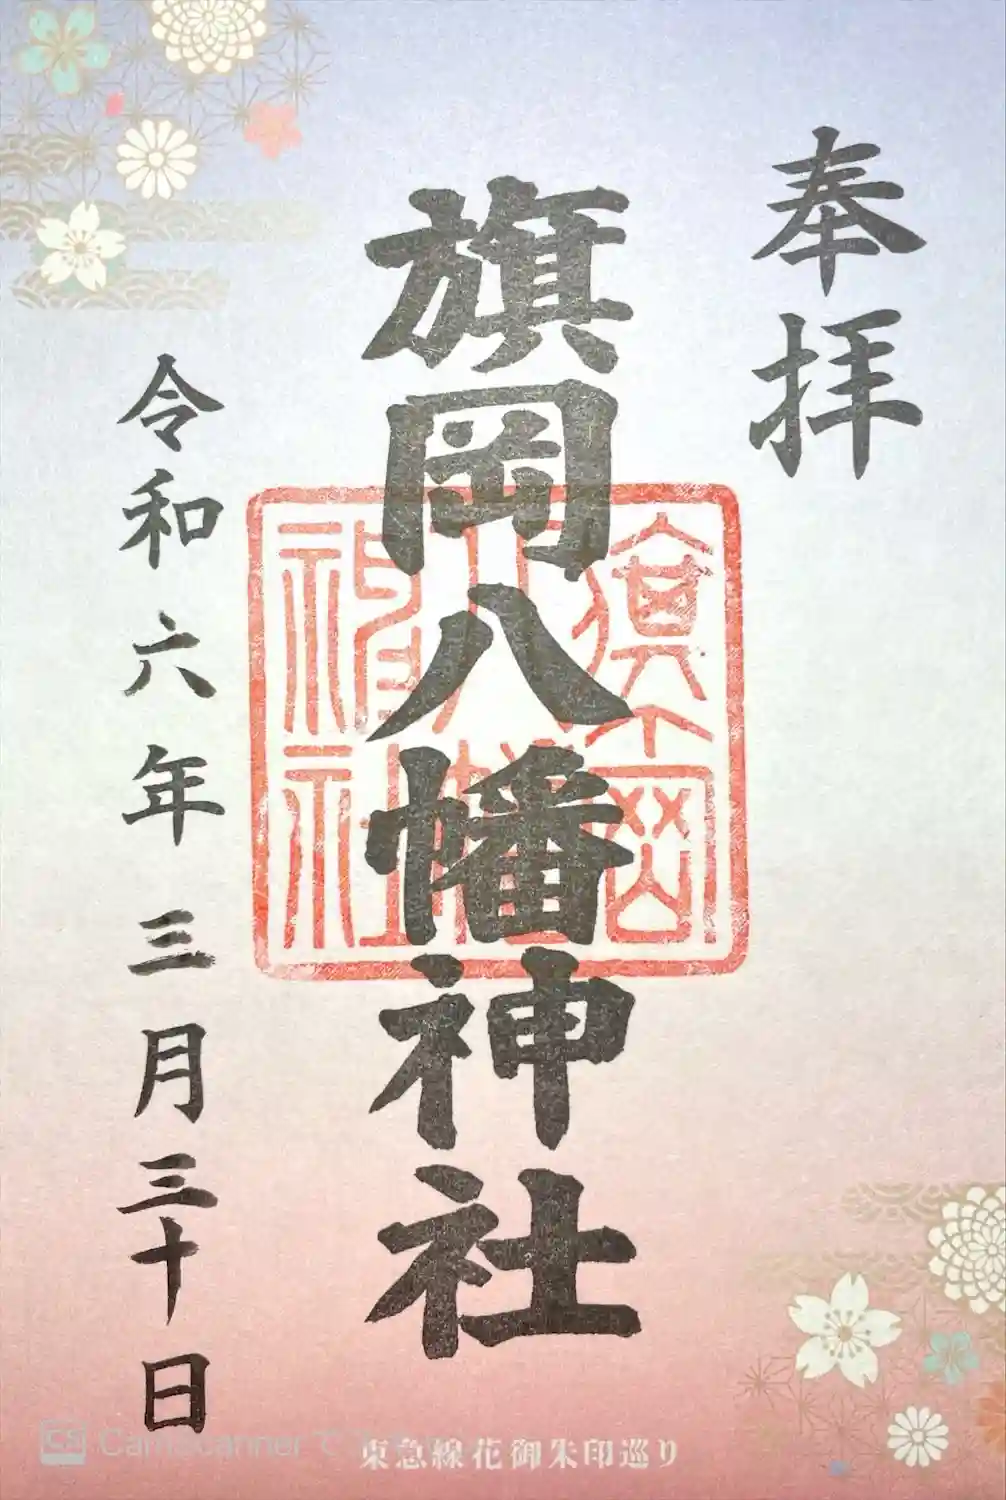 奉拝
旗岡八幡神社
令和六年三月三十日
東急線花御朱印巡り
CS CamScanner で